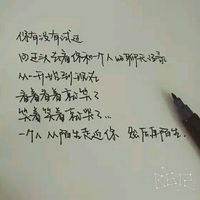 你有没有试过
回过头去看你和一个人的聊天记录
从一开始到现在
看着看着就哭了
笑着笑着就哭了...
一个人从陌生走近你 然后再陌生.